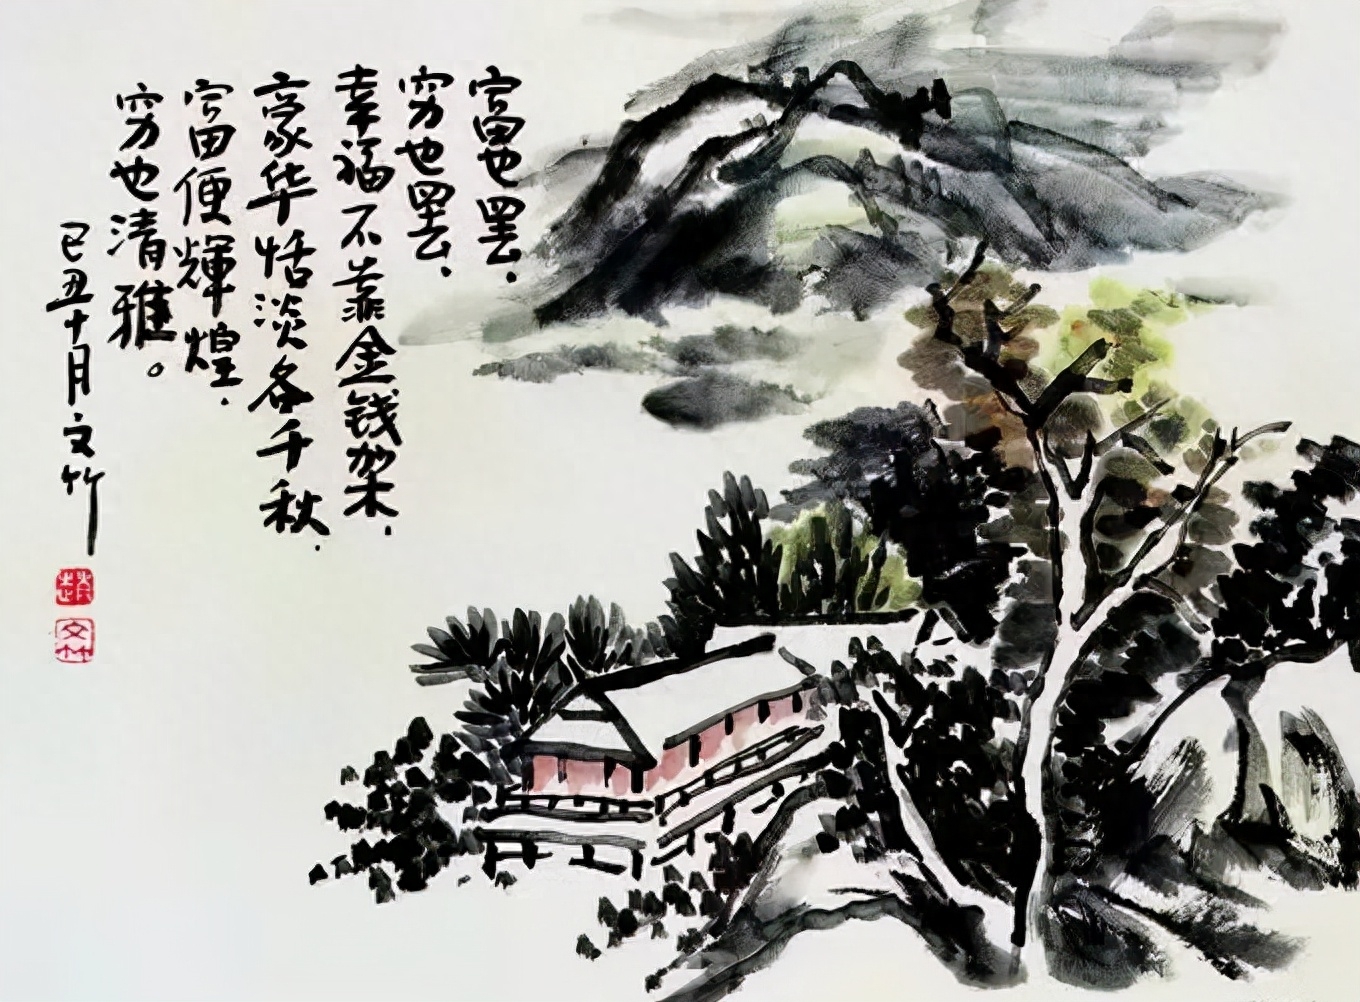 富也罢，
穷也罢，
幸福不靠金钱架，
豪华恬淡各千秋，
富田便輝煌，
穷也清雅。
己丑十月文竹
趙
文竹